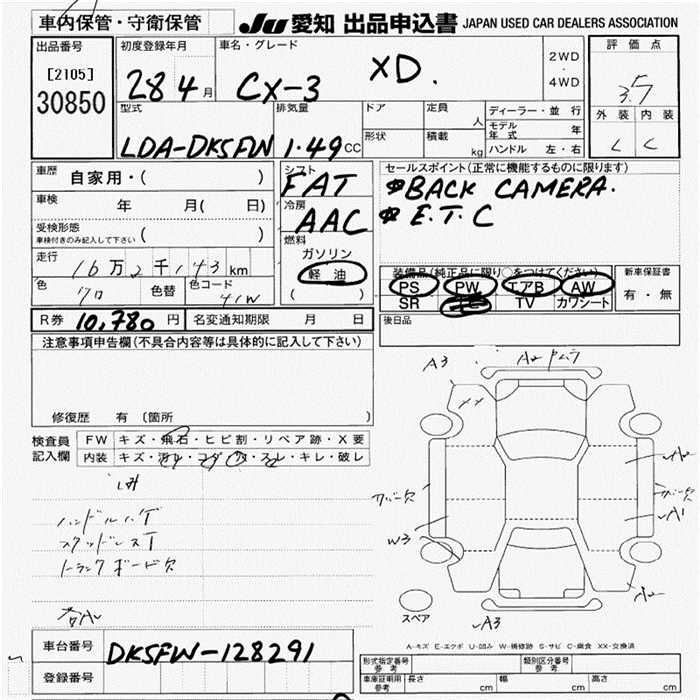 車内保管・守衛保管
JU 愛知 出品申込書 JAPAN USED CAR DEALERS ASSOCIATION
出品番号
[2105]
30850
初度登録年月
28 4 月
車名・グレード
CX-3 XD.
2WD
・
4WD
評価点
3.5
外装 内装
C C
型式
LDA-DK5FW
排気量
1.49 CC
ドア
定員
人
形状
積載
kg
ディーラー・並行
モデル年式 年
ハンドル 左・右
車歴
自家用・( )
車検
年 月( 日)
受検形態
車検付きのみ記入して下さい ( )
走行
16万2千143km
色
クロ
色替
色コード
41W
シフト
FAT
冷房
AAC
燃料
ガソリン
軽油
( )
セールスポイント(正常に機能するものに限ります)
BACK CAMERA.
E.T.C
装備品(純正品に限り○をつけてください)
PS PW エアB AW
SR TV カワシート
新車保証書
有・無
後日品
R券 10,780 円
名変通知期限 月 日
注意事項申告欄(不具合内容等は具体的に記入して下さい)
修復歴 有 〔箇所
検査員
記入欄
FW キズ・飛石・ヒビ割・リペア跡・X要
内装 キズ・汚れ・コゲ・穴・スレ・キレ・破レ
ハンドルハゲ
スタッドレスT
トランクボード欠
A3
XX
A2
カバー欠
A2
カバー欠
A1
W3
A2
A3
スペア
A-キズ E-エクボ U-凹み W-補修跡 S-サビ C-腐食 XX-交換済
車台番号
DK5FW-128291
登録番号
形式指定番号
参考
類別区分番号
参考
車庫証明用
参考
長さ cm
幅 cm
高さ cm